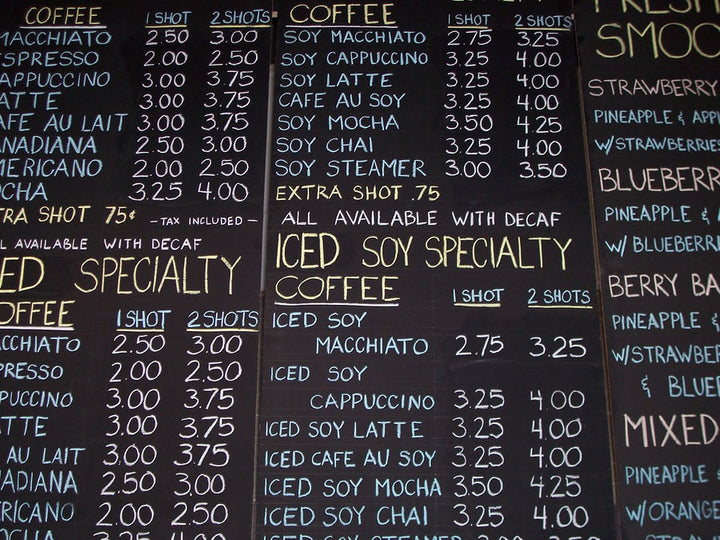 COFFEE 1 SHOT 2 SHOTS
MACCHIATO 2.50 3.00
SPRESSO 2.00 2.50
APPUCCINO 3.00 3.75
ATTE 3.00 3.75
AFE AU LAIT 3.00 3.75
ANADIANA 2.50 3.00
MERICANO 2.00 2.50
OCHA 3.25 4.00
TRA SHOT 75¢ - TAX INCLUDED -
L AVAILABLE WITH DECAF
ED SPECIALTY
OFFEE 1 SHOT 2 SHOTS
CCHIATO 2.50 3.00
PRESSO 2.00 2.50
PUCCINO 3.00 3.75
TTE 3.00 3.75
AU LAIT 3.00 3.75
NADIANA 2.50 3.00
RICANO 2.00 2.50
OCHA 3.25 4.00
COFFEE 1 SHOT 2 SHOTS
SOY MACCHIATO 2.75 3.25
SOY CAPPUCCINO 3.25 4.00
SOY LATTE 3.25 4.00
CAFE AU SOY 3.25 4.00
SOY MOCHA 3.50 4.25
SOY CHAI 3.25 4.00
SOY STEAMER 3.00 3.50
EXTRA SHOT .75
ALL AVAILABLE WITH DECAF
ICED SOY SPECIALTY
COFFEE 1 SHOT 2 SHOTS
ICED SOY
MACCHIATO 2.75 3.25
ICED SOY
CAPPUCCINO 3.25 4.00
ICED SOY LATTE 3.25 4.00
ICED CAFE AU SOY 3.25 4.00
ICED SOY MOCHA 3.50 4.25
ICED SOY CHAI 3.25 4.00
ICED SOY STEAMER
FRESH
SMOO
STRAWBERRY
PINEAPPLE & APP
W/STRAWBERRIES
BLUEBERR
PINEAPPLE &
W/ BLUEBERRI
BERRY BA
PINEAPPLE &
W/STRAWBER
& BLUE
MIXED
PINEAPPLE &
W/ORANGE